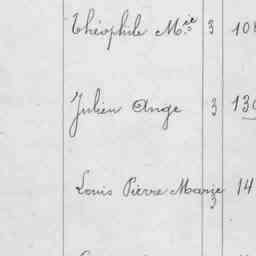 Théophile M.ie 3
Julien Ange 3
Louis Pierre Marie 14
3